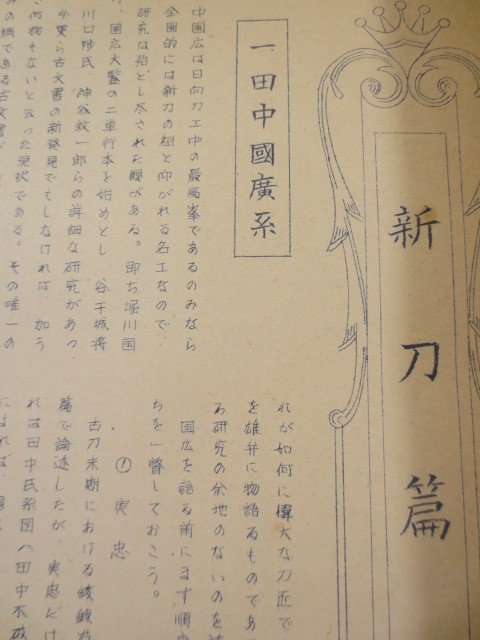 新刀篇
一 田中國廣系
中国広は日向刀工中の最高峯であるのみなら
全国的には新刀の祖と仰がれる名工なので
研究は殆どし尽された観がある。即ち堀川国
国広大鑑の二単行本を始めとし 谷干城将
川口陟氏 神谷紋一郎らの詳細な研究があつ
今更ら古文書の新発見でもしなければ 加う
何物もないと云つた現状である。その唯一の
の綱である古文書
れが如何に偉大な刀匠で
を雄弁に物語るものであ
る研究の余地のないのを
国広を語る前にまず順
ちを一瞥しておこう。
① 実忠
古刀末期における
篇で論述したが 実忠
れは田中氏系図(田中不破
によれば